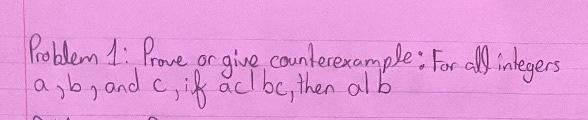 Problem 1: Prove or give counterexample: For all integers
a, b, and c, if ac | bc, then a | b